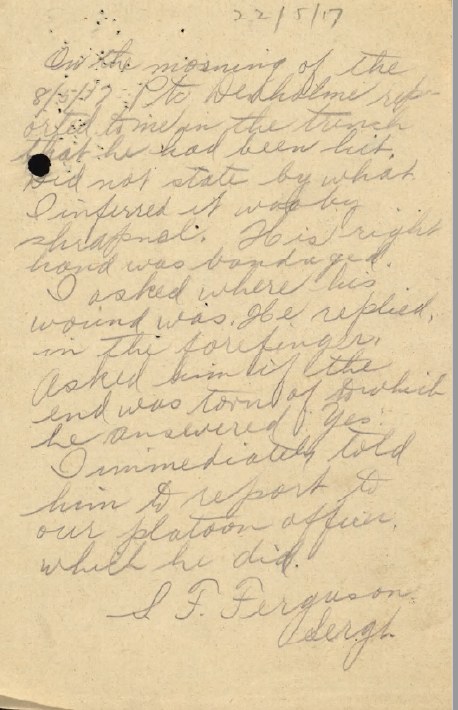 22/5/17
On the morning of the
8/5/17 Pte Denholme rep-
orted to me in the trench
that he had been hit.
Did not state by what
I inferred it was by
shrapnel. His right
hand was bandaged.
I asked where his
wound was. He replied,
in the forefinger.
Asked him if the
end was torn of to which
he answered Yes.
I immediately told
him to report to
our platoon officer.
which he did.
S. F. Ferguson
Sergt.